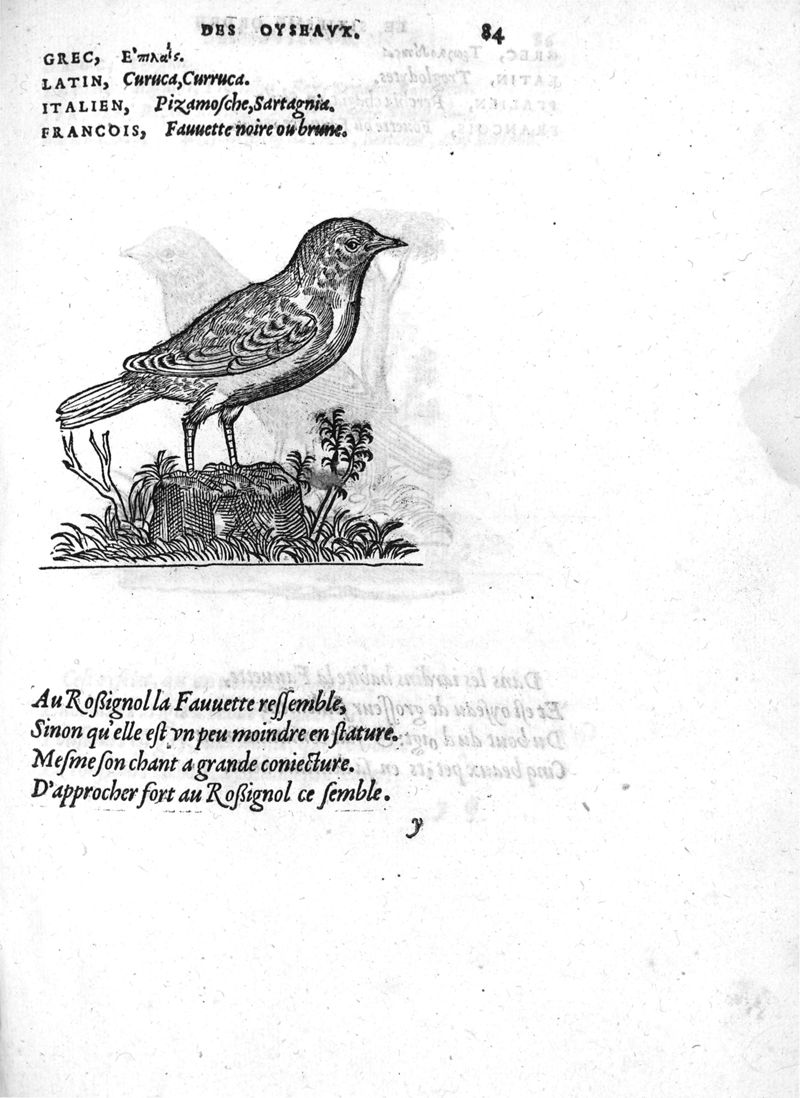 DES OYSEAVX. 84
GREC, Ε'πλαΐς.
LATIN, Curuca, Curruca.
ITALIEN, Pizamoſche, Sartagnia.
FRANCOIS, Fauuette noire ou brune.
Au Roßignol la Fauuette reſſemble,
Sinon qu'elle eſt vn peu moindre en ſtature.
Meſme ſon chant a grande coniecture.
D'approcher fort au Roßignol ce ſemble.
y